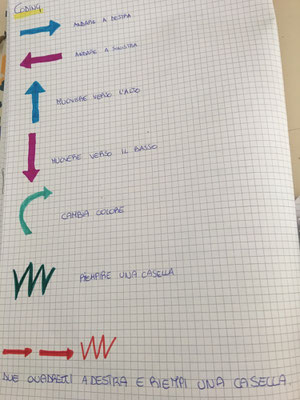 CODING
ANDARE A DESTRA
ANDARE A SINISTRA
MUOVERE VERSO L'ALTO
MUOVERE VERSO IL BASSO
CAMBIA COLORE
RIEMPIRE UNA CASELLA
DUE QUADRETTI A DESTRA E RIEMPI UNA CASELLA